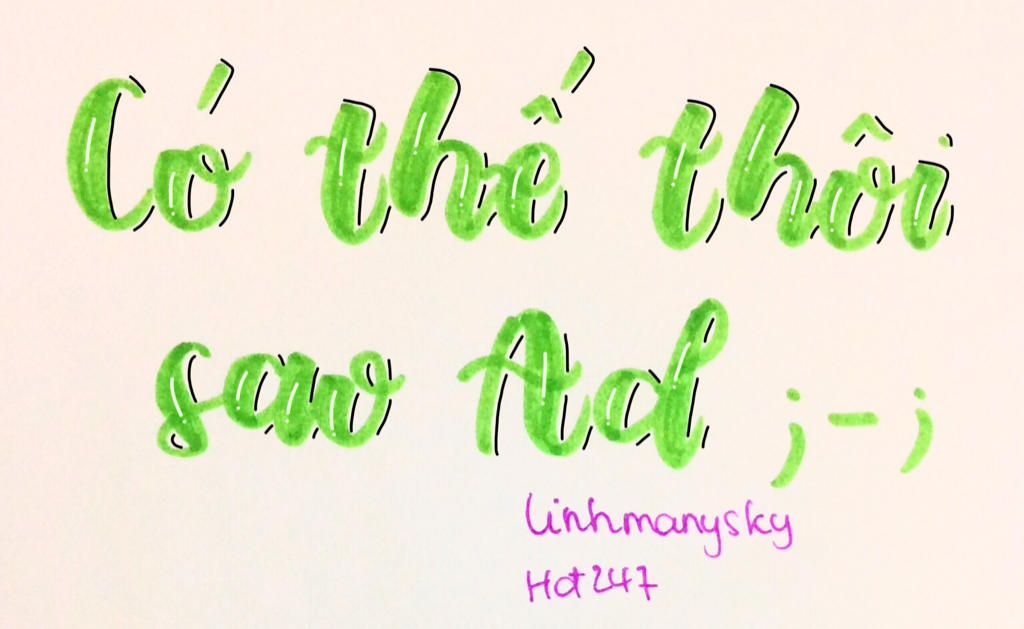 Có thế thôi
sao Ad ;-;
linhmanysky
Hot247